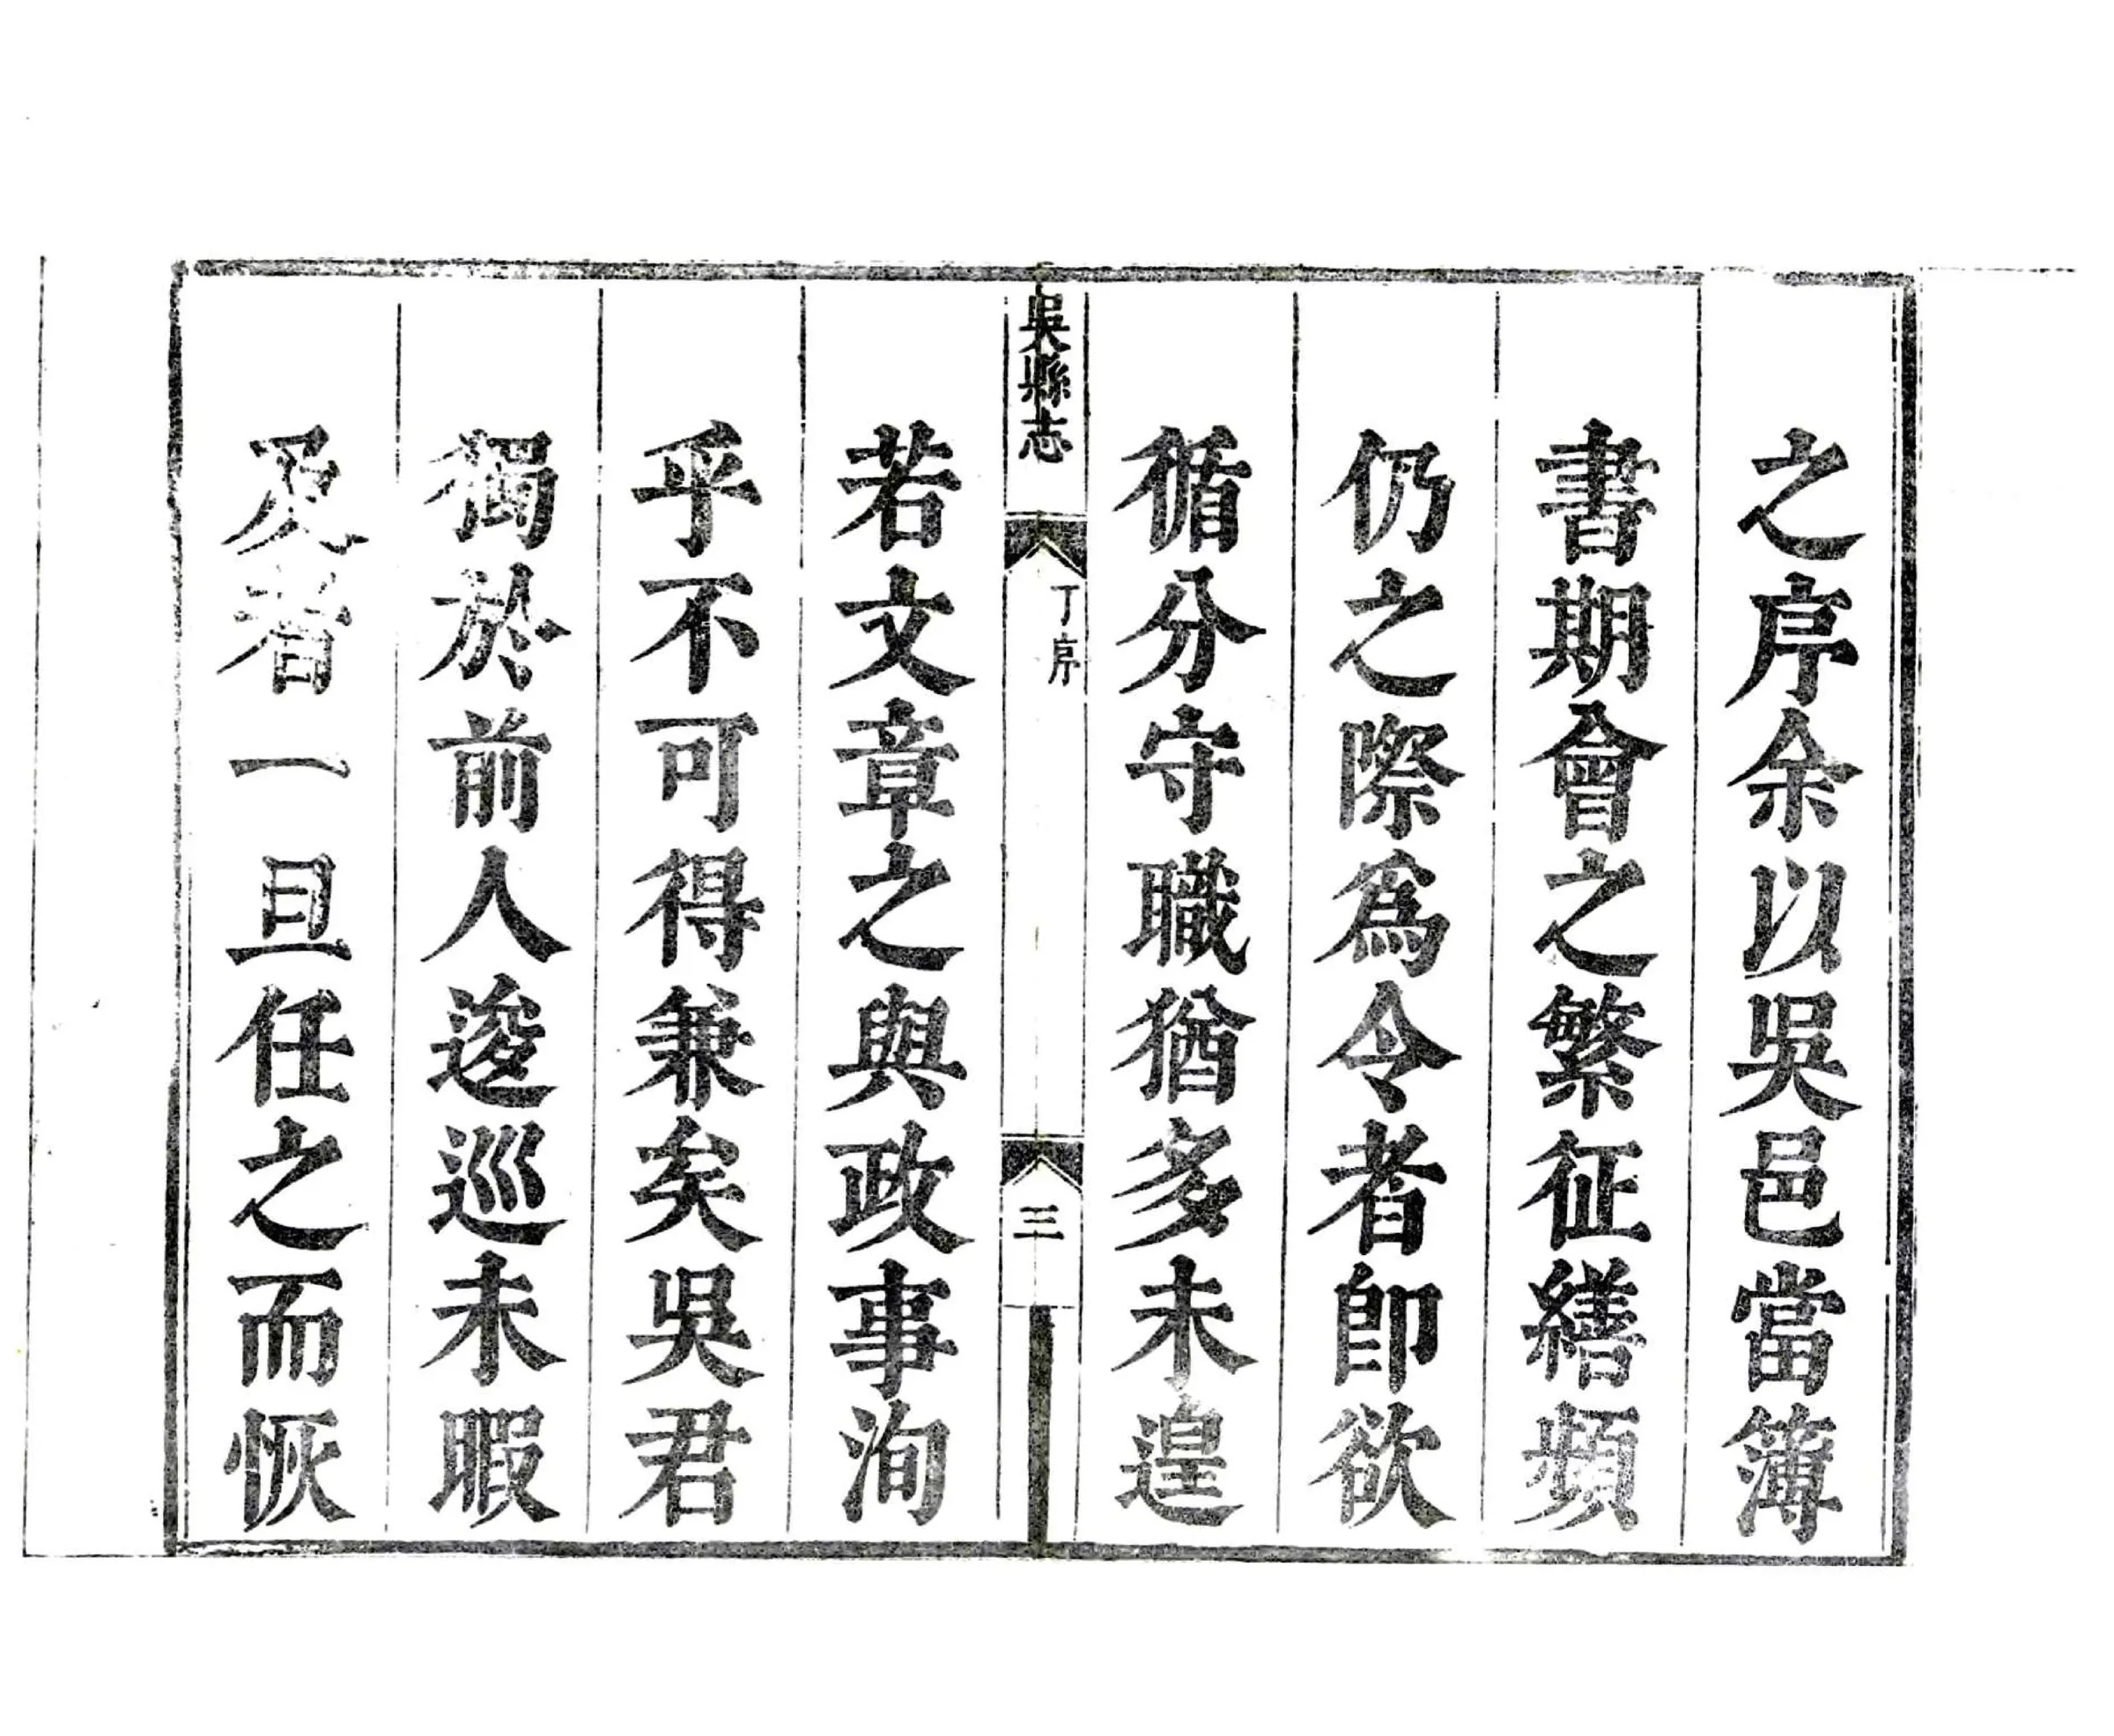 之序余以吳邑當簿
書期會之繁征繕頻
仍之際爲令者卽欲
循分守職猶多未遑
吳縣志
丁序
三
若文章之與政事洵
乎不可得兼矣吳君
獨於前人逡巡未暇
及者一旦任之而恢